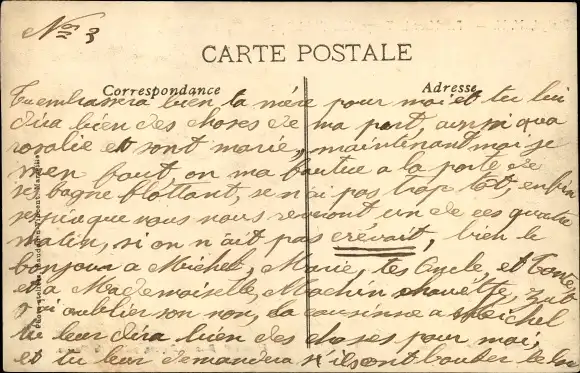 Nº 3
CARTE POSTALE
Correspondance
Adresse
Tu embrassera bien ta mère pour moi et tu lui
dira bien des choses de ma part, aussi qua
rosalie et sont marie, maintenant moi je
men fout, on ma foutue a la porte de
se bagne flottant, se n'ai pas trop tôt, enfin
que nous nous un de ces quatre
matin, si on n'ait pas crévait, bien le
bonjour a Michel, Marie, tes Oncle, et Tante
et a Mademoiselle Machin chouette, zut
j'ai oublier son non, la cousinne a Michel
tu leur dira bien des choses pour moi,
et tu leur demandera s'ils ont